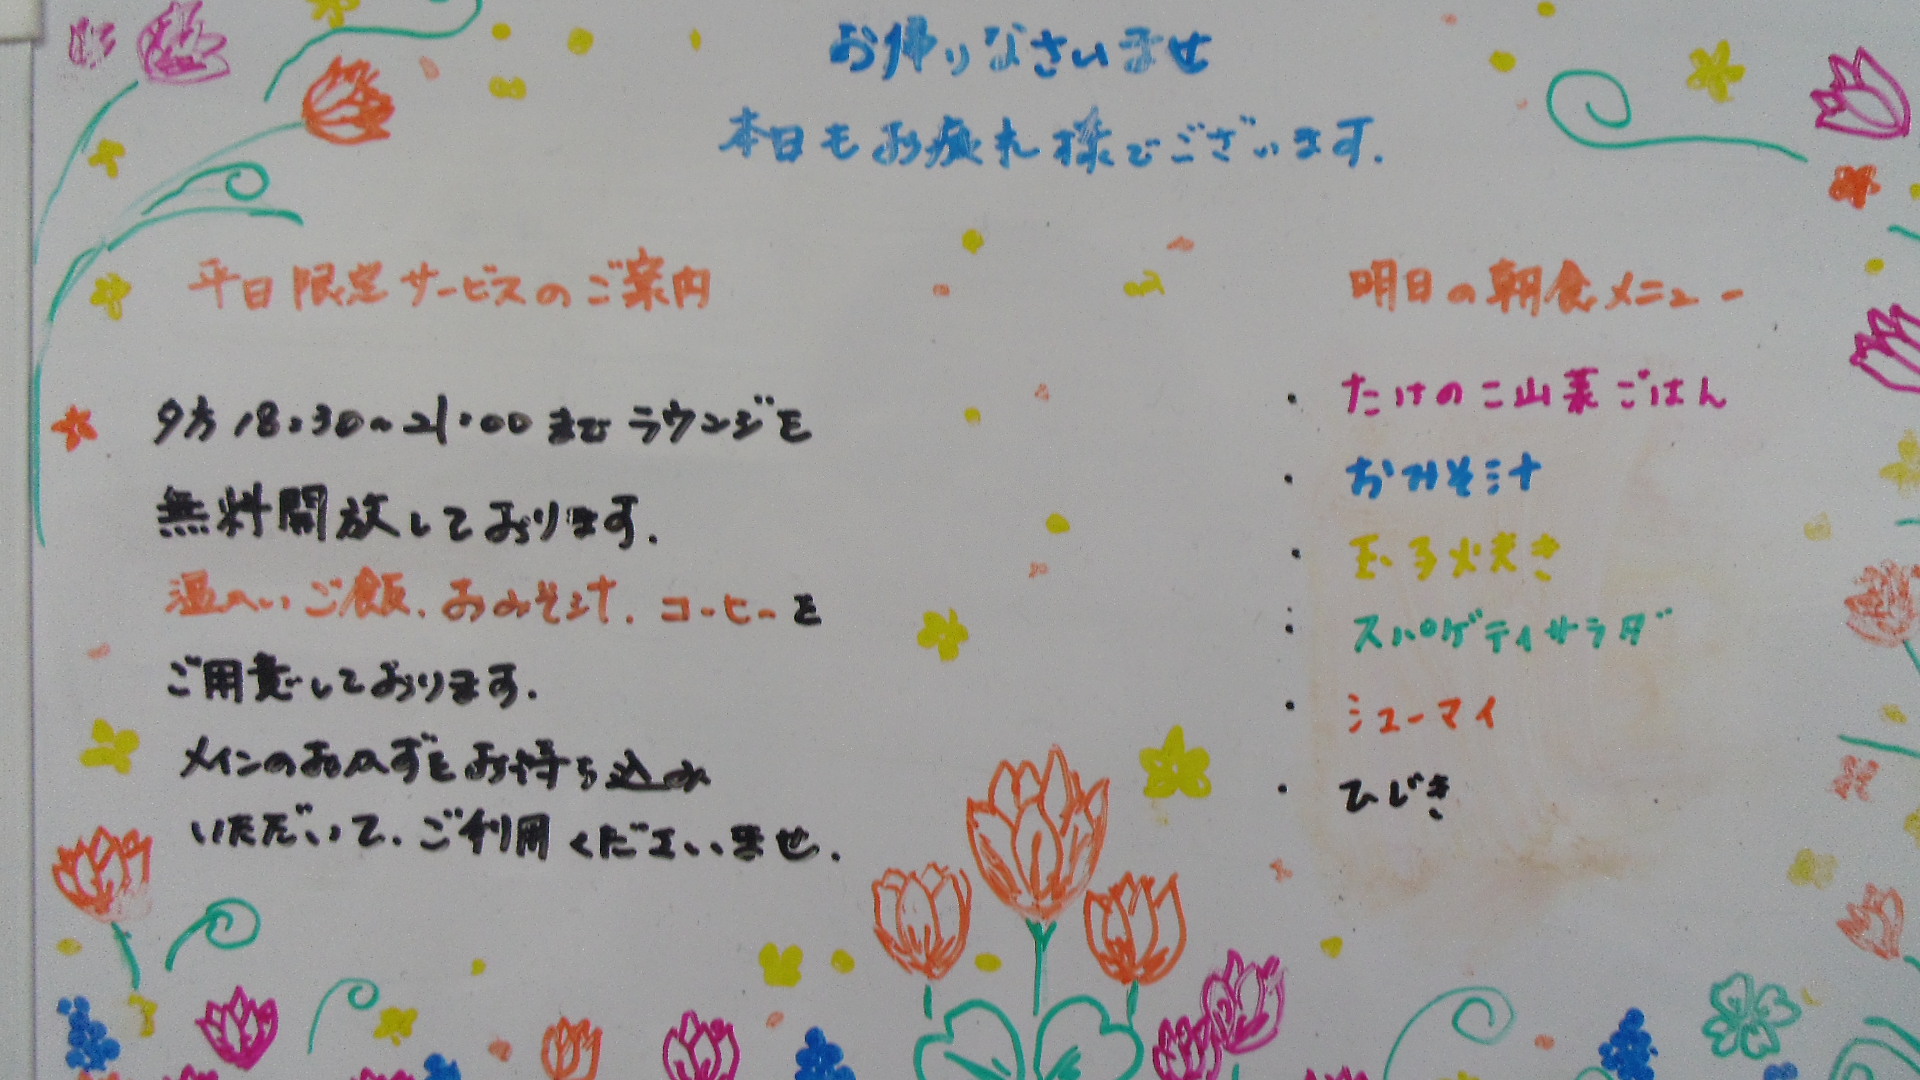 お帰りなさいませ
本日もお疲れ様でございます.
平日限定サービスのご案内
夕方18:30~21:00までラウンジを
無料開放しております.
温かいご飯.おみそ汁.コーヒーを
ご用意しております.
メインのおかずをお持ち込み
いただいて.ご利用くださいませ.
明日の朝食メニュー
・たけのこ山菜ごはん
・おみそ汁
・玉子焼き
・スパゲティサラダ
・シューマイ
・ひじき